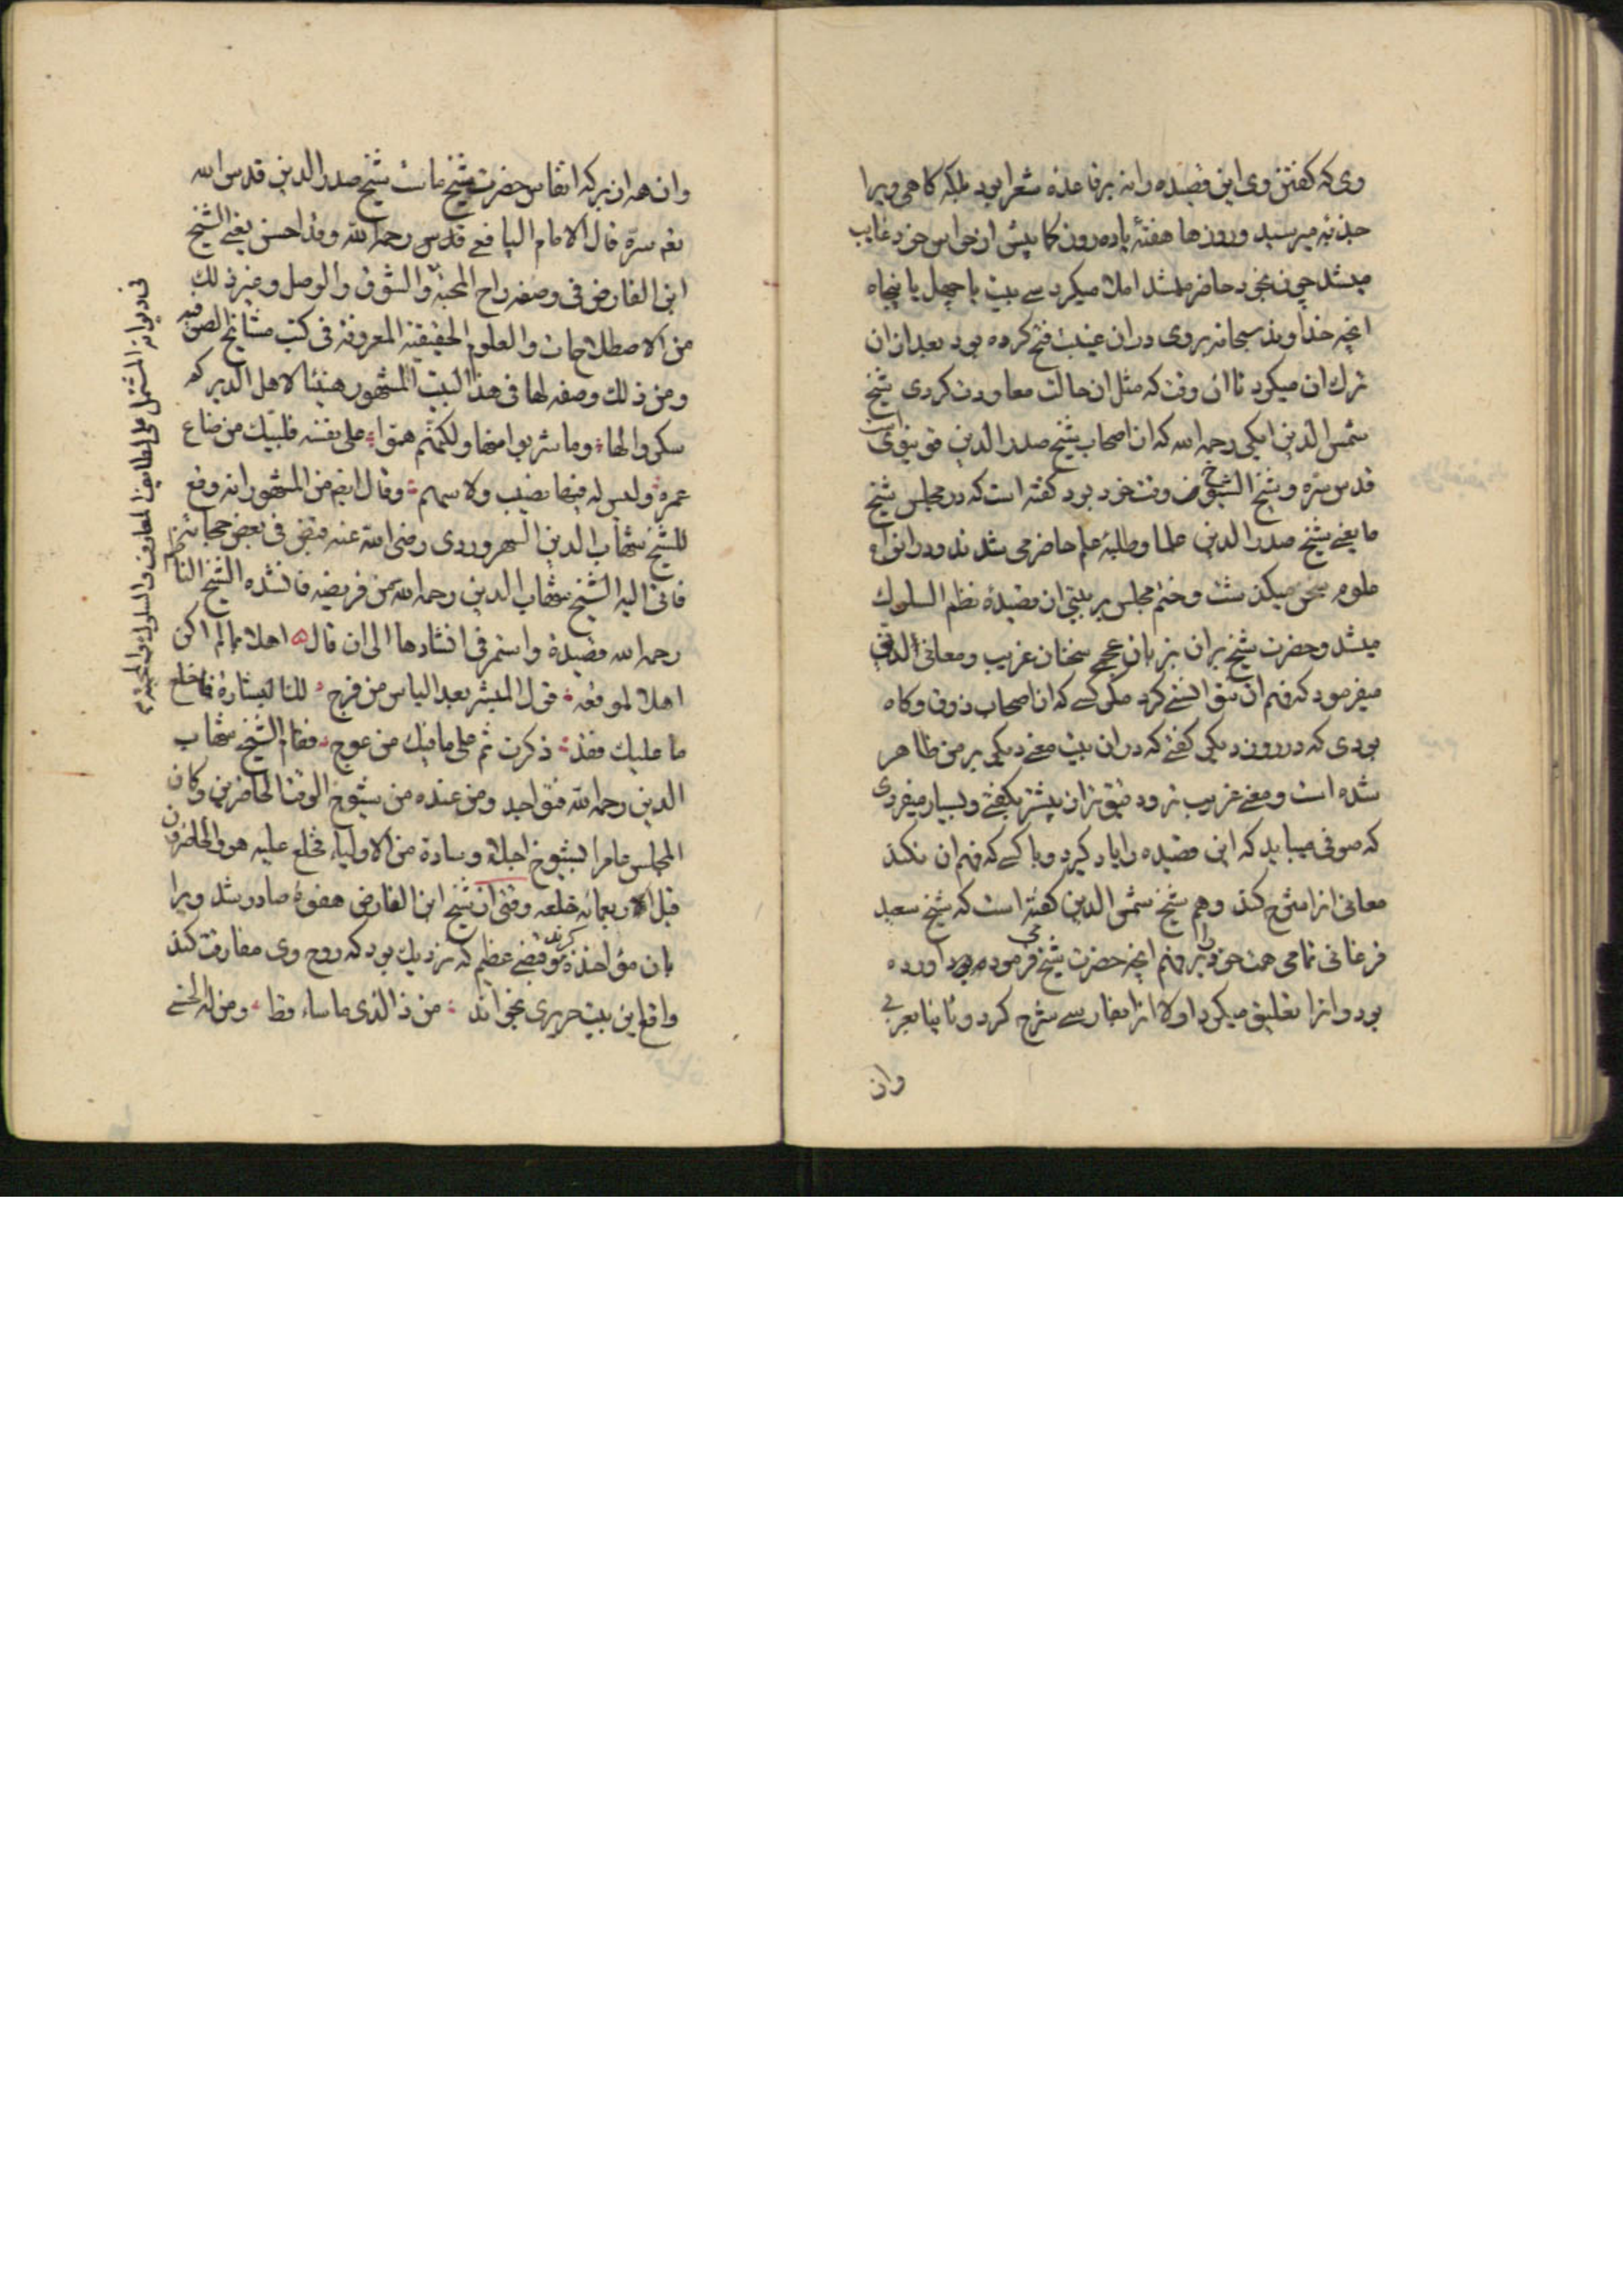 وی که گفتن وی این قصیده را نه بر قاعده شعرا بود بلکه گاهی ویرا
جذبه میرسید و روزها هفته یا ده روز کما بیش از حواس خود غایب
میشد چون بخود حاضر میشد املا میکرد سی بیت یا چهل یا پنجاه
انچه خداوند سبحانه بر وی دران غیبت فتح کرده بود بعد ازان
ترک ان میکرد تا ان وقت که مثل ان حالت معاودت کردی شیخ
شمس الدین ایکی رحمه الله که از اصحاب شیخ صدر الدین قونیوی است
قدس سره و شیخ الشیوخ وقت خود بود گفته است که در مجلس شیخ
ما یعنی شیخ صدر الدین علما و طلبه علم حاضر می شدند و در انواع
علوم سخن میگذشت و ختم مجلس بر بیتی از قصیده نظم السلوک
میشد و حضرت شیخ بر ان بزبان عجمی سخنان غریب و معانی لدنی
میفرمود که فهم ان نتوانستی کرد مگر کسی که از اصحاب ذوق و کاه
بودی که در روز دیگر گفتی که دران بیت معنی دیگر بر من ظاهر
شده است و معنی غریب تر و دقیق تر از پیشتر بگفتی و بسیار میفرمودی
که صوفی میباید که این قصیده را یاد گیرد و با کسی که فهم ان کند
معانی انرا شرح کند و هم شیخ شمس الدین گفته است که شیخ سعید
فرغانی تمامی همت خود را بر فهم انچه حضرت شیخ می فرمود اورده
بود و انرا تعلیق میکرد اولا انرا بفارسی شرح کرد و ثانیا بعربی
وان
وان همه از برکه انفاس حضرت شیخ ماست شیخ صدر الدین قدس الله
تعه سره قال الامام الیافعی قدس رحمه الله وقد احسن یعنی الشیخ
ابن الفارض فی وصفه راح المحبة والشوق والوصل وغیر ذلک
من الاصطلاحات والعلوم الحقیقة المعروفة فی کتب مشائخ الصوفیه
ومن ذلک وصفه لها فی هذا البیت المشهور هنیئا لاهل الدیر کم
سکروا بها وما شربوا منها ولکنهم هموا علی نفسه فلیبک من ضاع
عمره ولیس له فیها نصیب ولا سهم وقال ایضا من المشهور انه وقع
للشیخ شهاب الدین السهروردی رضی الله عنه قبض فی بعض حجاته
فاتی الیه الشیخ شهاب الدین رحمه الله من فریضه فانشده الشیخ الناظم
رحمه الله قصیدة واستمر فی انشادها الی ان قال اهلا بما لم اکن
اهلا لموقعه قول المبشر بعد الیاس من فرج لک البشارة فاخلع
ما علیک فقد ذکرت ثم علی ما فیک من عوج فقام الشیخ شهاب
الدین رحمه الله فتواجد ومن عنده من شیوخ الوقت الحاضرین وکان
المجلس عامرا بشیوخ اجلة وسادة من الاولیاء فخلع علیه هو والحاضرون
قیل اربعمائه خلعه وقتی از شیخ ابن الفارض هفوه صادر شد ویرا
بان مؤاخذه کردند بقبضی عظیم که نزدیک بود که روح وی مفارقت کند
واقع این بیت حریری بخواند من ذا الذی ما ساء قط ومن له الحسنی
فی دیوانه المشتمل علی لطایف المعارف والسلوک والمحبة